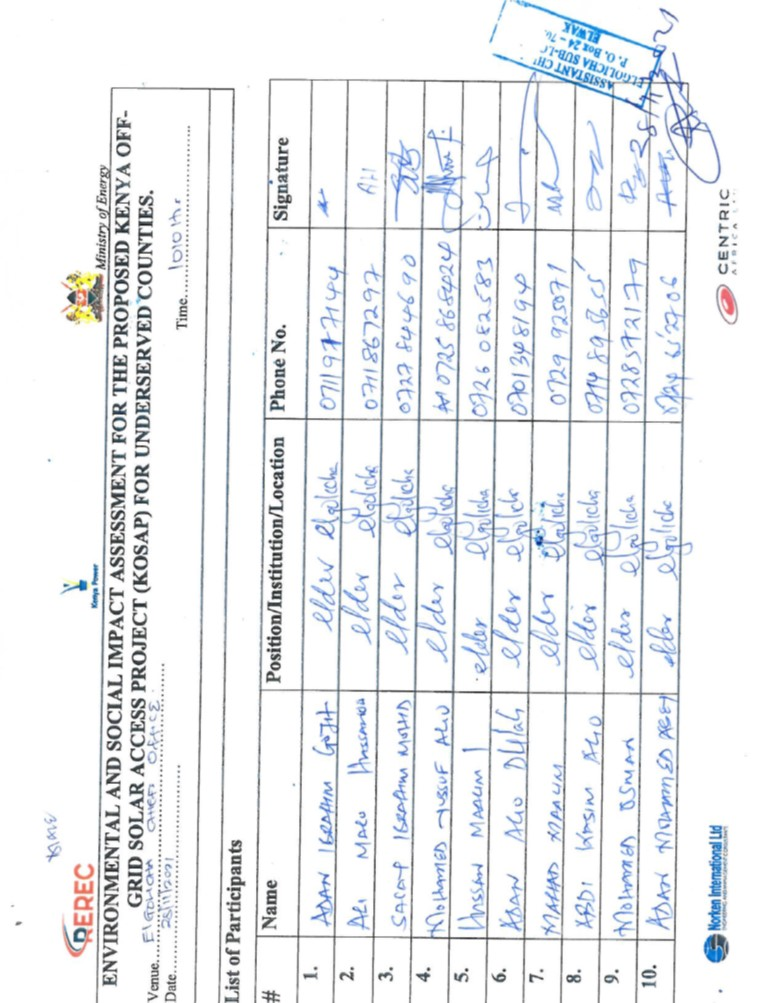 NAME
REREC
Kenya Power
Ministry of Energy
ENVIRONMENTAL AND SOCIAL IMPACT ASSESSMENT FOR THE PROPOSED KENYA OFF-
GRID SOLAR ACCESS PROJECT (KOSAP) FOR UNDERSERVED COUNTIES.
Venue... CHIEF OFFICE
Date... 25/11/2021
Time... 1010 Hr
List of Participants
# Name Position/Institution/Location Phone No. Signature
1. ADAN IBRAHIM elder elgolicha 0711977144
2. ALI elder elgolicha 0711867297 ALI
3. IBRAHIM MOHD elder elgolicha 0727844690
4. MOHAMED YUSSUF ALIO elder elgolicha 0725868424
5. HASSAN MAALIM elder elgolicha 0726 082583
6. ADAN ALIO elder elgolicha 0701348194
7. MAALIM elder elgolicha 0729 925071
8. ABDI ALIO elder elgolicha
9. MOHAMED OSMAN elder elgolicha 0728572179
10. ADAN MOHAMMED elder elgolicha
ASSISTANT CHI
ELGOLICHA SUB-LO
P. O. Box 24 - 70
ELWAK
25/11/2021
Norken International Ltd
CENTRIC
AFRICA LTD